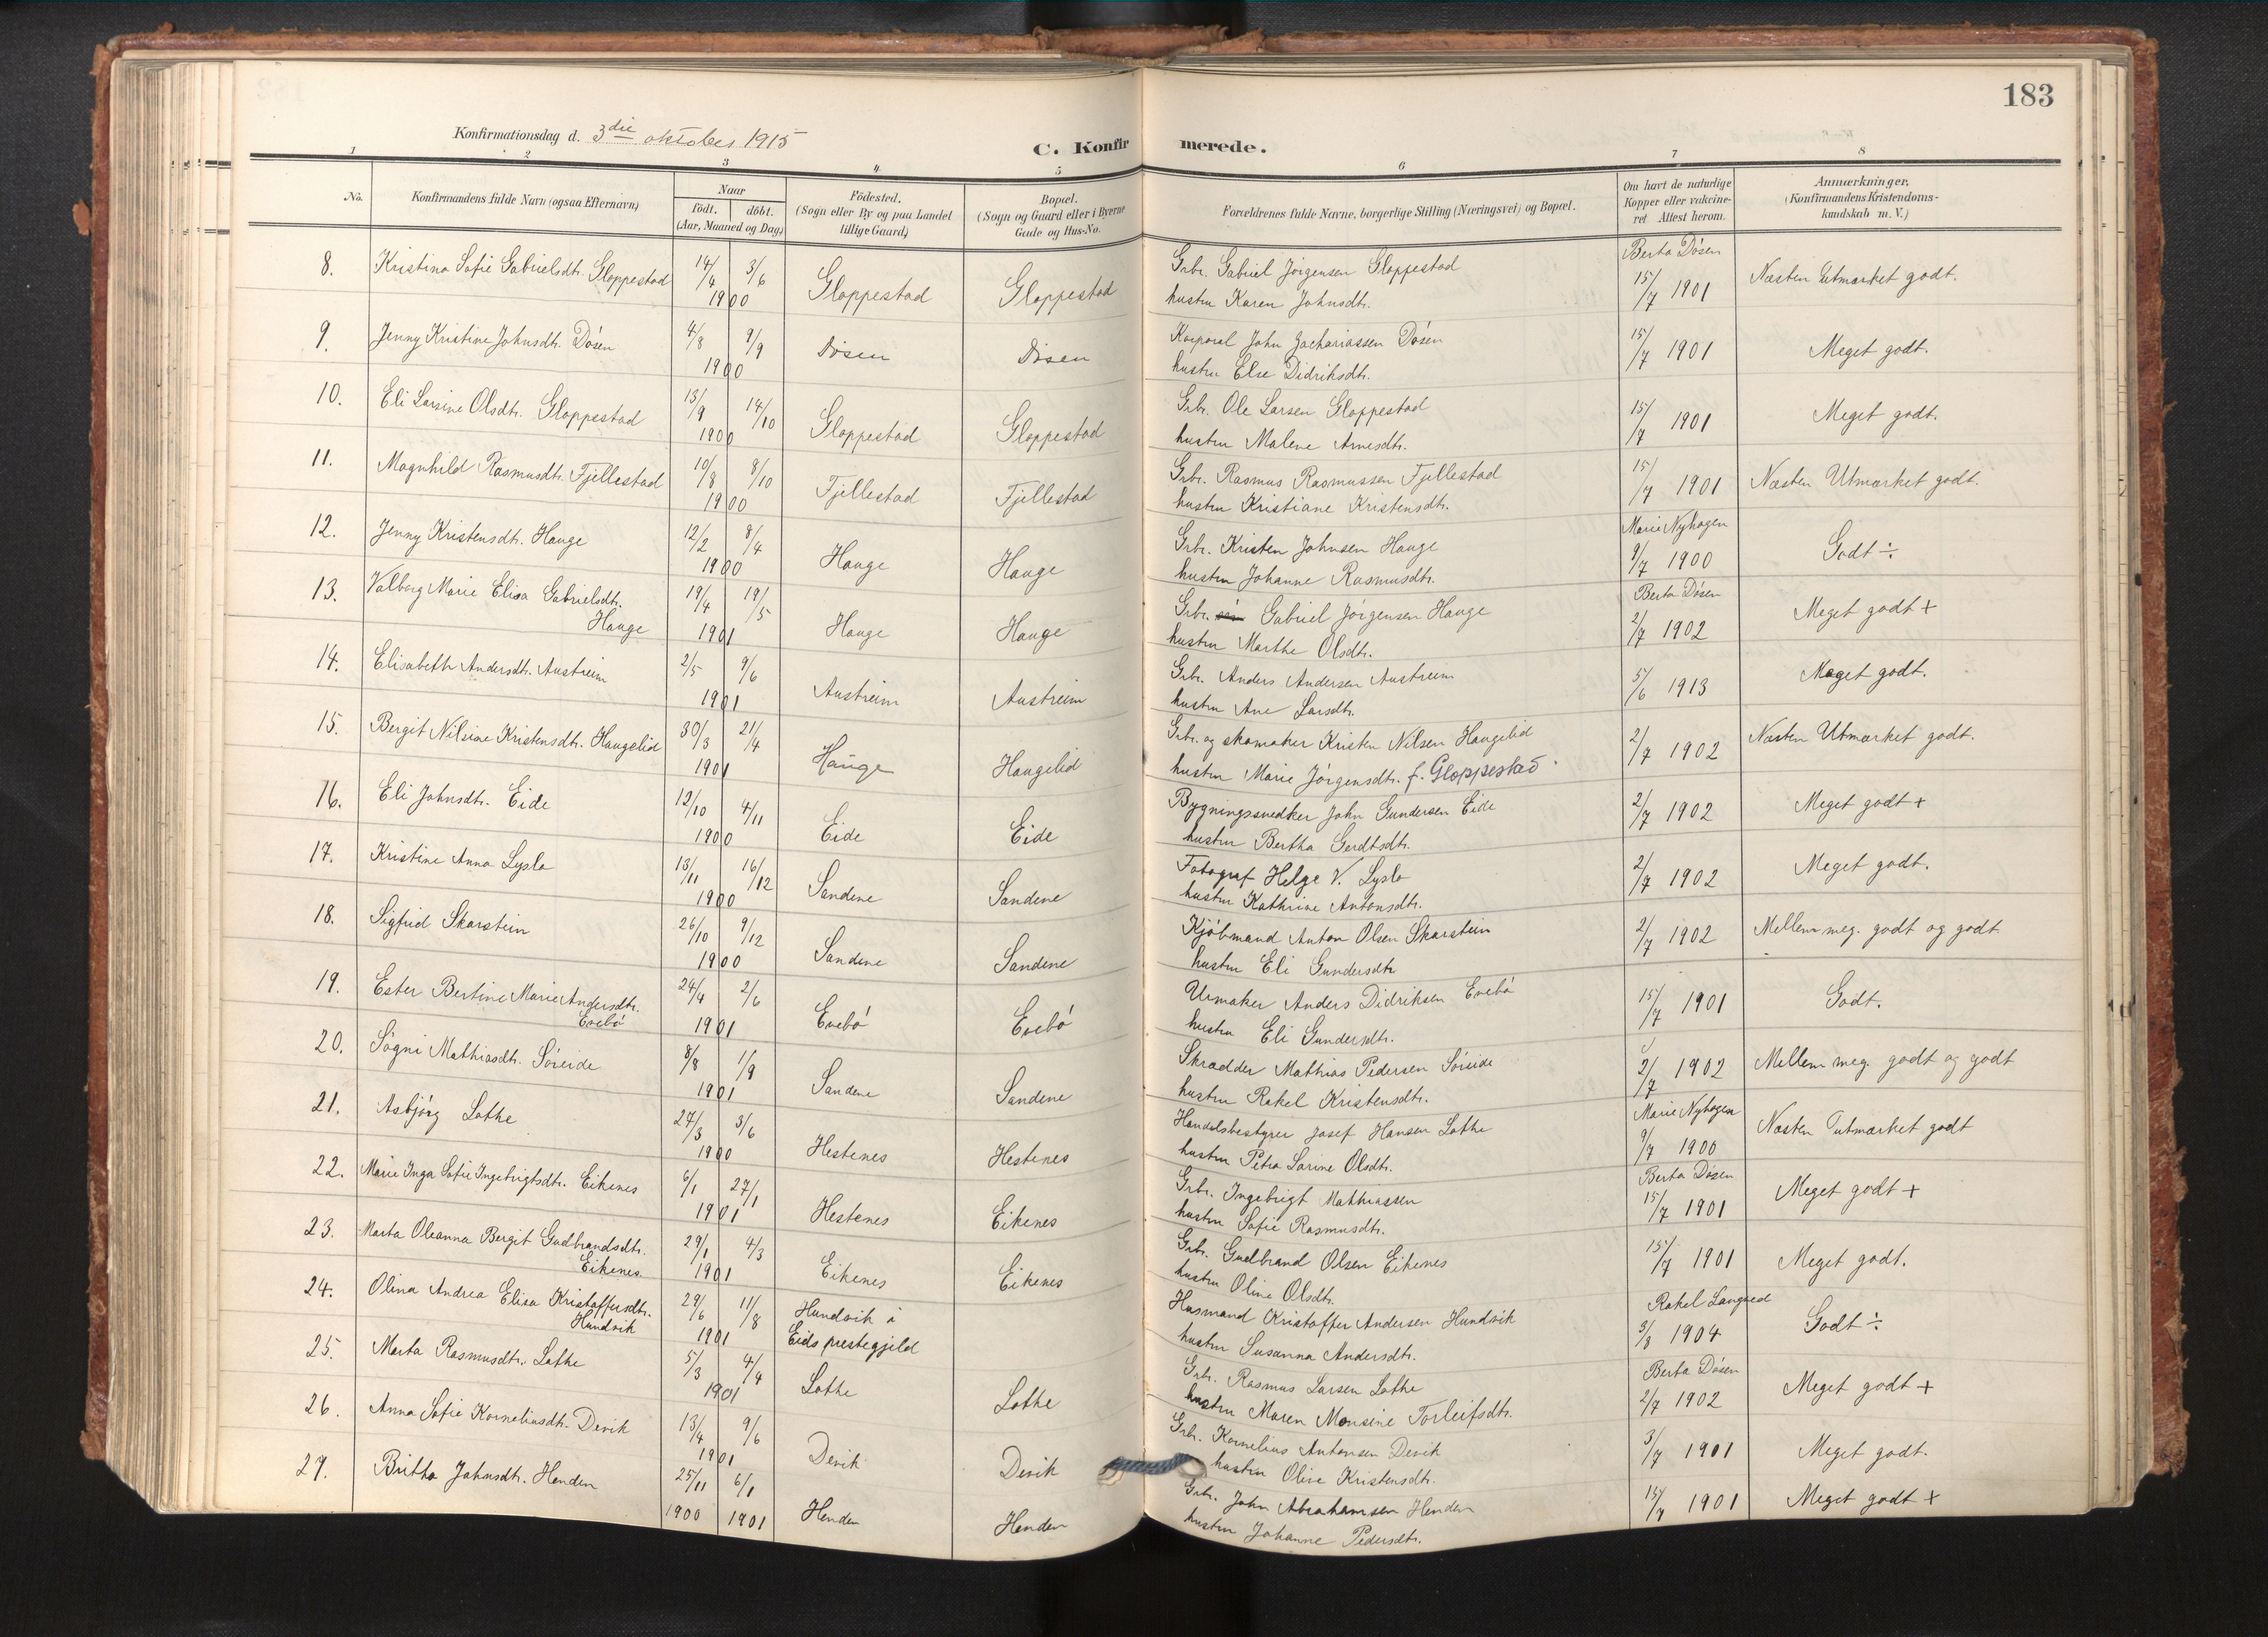 183
Konfirmationsdag d. 3die oktober 1915
C. Konfirmerede.
1 2 3 4 5 6 7 8
No. Konfirmandens fulde Navn (ogsaa Efternavn) Naar født. døbt. (Aar, Maaned og Dag) Födested. (Sogn eller By og paa Landet tillige Gaard) Bopæl. (Sogn og Gaard eller i Byerne Gade og Hus-No. Forældrenes fulde Navne, borgerlige Stilling (Næringsvei) og Bopæl. Om havt de naturlige Kopper eller vakcineret Attest herom. Anmærkninger. (Konfirmandens Kristendomskundskab m. V.)
8. Kristina Sofie Gabrielsdtr. Gloppestad 14/4 3/6 1900 Gloppestad Gloppestad Grbr. Gabriel Jörgensen Gloppestad Berta Dösen
hustru Karen Johnsdtr. 15/7 1901 Næsten Utmærket godt.
9. Jenny Kristine Johnsdtr. Dösen 4/8 9/9 1900 Dösen Dösen Korporal John Zachariassen Dösen
hustru Else Didriksdtr. 15/7 1901 Meget godt.
10. Eli Larsine Olsdtr. Gloppestad 13/9 14/10 1900 Gloppestad Gloppestad Grbr. Ole Larsen Gloppestad
hustru Malene Arnesdtr. 15/7 1901 Meget godt.
11. Magnhild Rasmusdtr. Fjellestad 10/8 8/10 1900 Fjellestad Fjellestad Grbr. Rasmus Rasmussen Fjellestad
hustru Kristiane Kristensdtr. 15/7 1901 Næsten Utmærket godt.
12. Jenny Kristensdtr. Hauge 12/2 8/4 1900 Hauge Hauge Grbr. Kristen Johnsen Hauge Marie Nyhagen
hustru Johanne Rasmusdtr. 9/7 1900 Godt ÷
13. Valborg Marie Elisa Gabrielsdtr. Hauge 19/4 19/5 1901 Hauge Hauge Grbr. Gabriel Jörgensen Hauge Berta Dösen
hustru Marthe Olsdtr. 2/7 1902 Meget godt +
14. Elisabeth Andersdtr. Austreim 2/5 9/6 1901 Austreim Austreim Grbr. Anders Andersen Austreim
hustru Ane Larsdtr. 5/6 1913 Meget godt.
15. Bergit Nilsine Kristensdtr. Haugelid 30/3 21/4 1901 Hauge Haugelid Grbr. og skomaker Kristen Nilsen Haugelid
hustru Marie Jörgensdtr. f. Gloppestad. 2/7 1902 Næsten Utmærket godt.
16. Eli Johnsdtr. Eide 12/10 4/11 1900 Eide Eide Bygningssnedker John Gundersen Eide
hustru Bertha Gerdtsdtr. 2/7 1902 Meget godt +
17. Kristine Anna Lyslo 13/11 16/12 1900 Sandene Sandene Fotograf Helge V. Lyslo
hustru Kathrine Antonsdtr. 2/7 1902 Meget godt.
18. Sigfrid Skarstein 26/10 9/12 1900 Sandene Sandene Kjöbmand Anton Olsen Skarstein
hustru Eli Gundersdtr 2/7 1902 Mellem meg. godt og godt
19. Ester Bertine Marie Andersdtr. Evebö 24/4 2/6 1901 Evebö Evebö Urmaker Anders Didriksen Evebö
hustru Eli Gundersdtr. 15/7 1901 Godt.
20. Sögni Mathiasdtr. Söreide 8/8 1/9 1901 Sandene Sandene Skrædder Mathias Pedersen Söreide
hustru Rakel Kristensdtr. 2/7 1902 Mellem meg. godt og godt
21. Asbjörg Lothe 27/3 3/6 1900 Hestenes Hestenes Handelsbestyrer Josef Hansen Lothe Marie Nyhagen
hustru Petra Sarine Olsdtr. 9/7 1900 Næsten utmærket godt
22. Marie Inga Sofie Ingebrigtsdtr. Eikenes 6/1 27/1 1901 Hestenes Eikenes Grbr. Ingebrigt Mathiassen Berta Dösen
hustru Sofie Rasmusdtr. 15/7 1901 Meget godt +
23. Marta Oleanna Bergit Gudbrandsdtr. Eikenes 29/1 4/3 1901 Eikenes Eikenes Grbr. Gudbrand Olsen Eikenes
hustru Oline Olsdtr. 15/7 1901 Meget godt.
24. Olina Andrea Elisa Kristoffersdtr. Hundvik 29/6 11/8 1901 Hundvik i Eids prestegjeld Husmand Kristoffer Andersen Hundvik Rakel
hustru Susanna Andersdtr. 3/8 1904 Godt ÷
25. Marta Rasmusdtr. Lothe 5/3 4/4 1901 Lothe Lothe Grbr. Rasmus Larsen Lothe Berta Dösen
hustru Maren Monsine Torleifsdtr. 2/7 1902 Meget godt +
26. Anna Sofie Korneliusdtr. Devik 13/4 9/6 1901 Devik Devik Grbr. Kornelius Antonsen Devik
hustru Olive Kristensdtr. 3/7 1901 Meget godt.
27. Britha Johnsdtr. Henden 25/11 1900 6/1 1901 Henden Henden Grbr. John Abrahamsen Henden
hustru Johanne Pedersdtr. 15/7 1901 Meget godt +